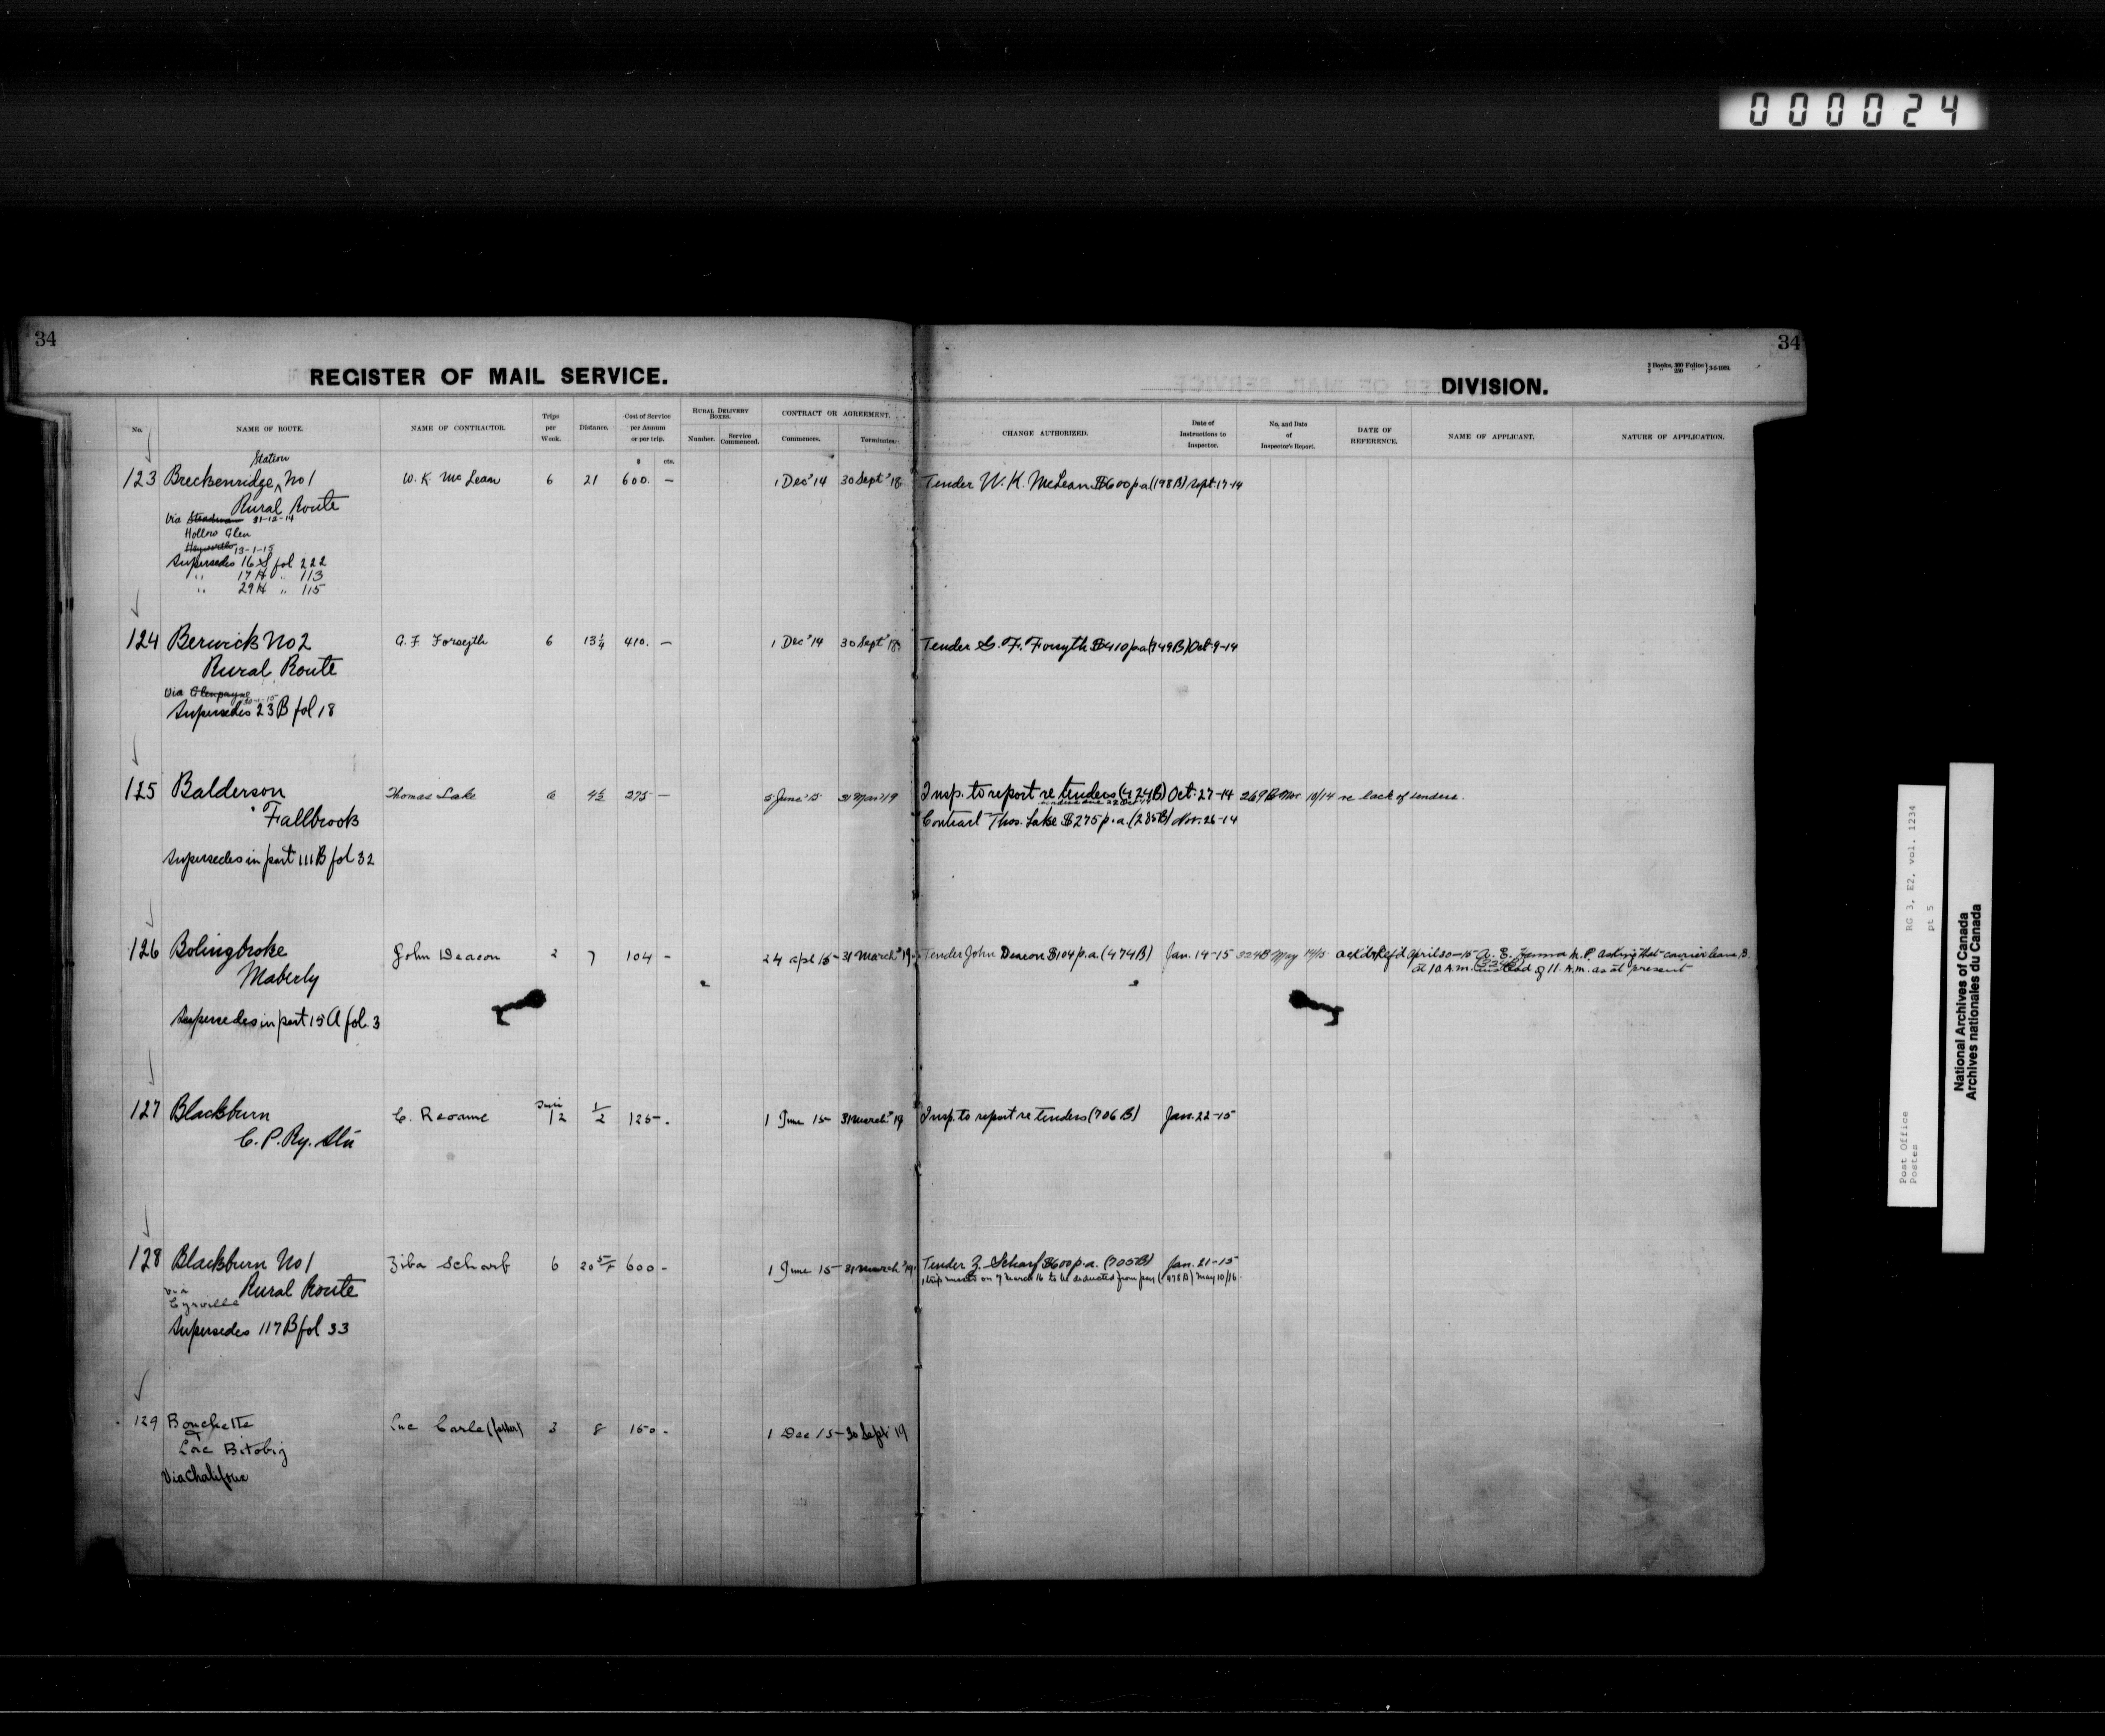 000024
34
34
REGISTER OF MAIL SERVICE.
DIVISION.
2 Books, 300 Folios } 3-5-1909.
3 " 250 "
No.
NAME OF ROUTE.
NAME OF CONTRACTOR.
Trips per Week.
Distance.
Cost of Service per Annum or per trip.
$ cts.
RURAL DELIVERY BOXES.
Number.
Service Commenced.
CONTRACT OR AGREEMENT.
Commences.
Terminates.
CHANGE AUTHORIZED.
Date of Instructions to Inspector.
No. and Date of Inspector's Report.
DATE OF REFERENCE.
NAME OF APPLICANT.
NATURE OF APPLICATION.
Station
123 Breckenridge ^ No 1 W. K. McLean 6 21 600. — 1 Dec' 14 30 Sept '18 Tender W. K. McLean $600 p a (198B) Sept. 17-14
Rural Route
Via Steadman 31-12-14
Hollow Glen
Heyworth 13-1-15
Supersedes 16 S fol 222
" 17 H " 113
" 29 H " 115
124 Berwick No 2 G. F. Forsyth 6 13 1/4 410. — 1 Dec' 14 30 Sept '18 Tender G. F. Forsyth $410 p a (749B) Oct 9-14
Rural Route
Via Glenpayne
Supersedes 23 B fol 18
125 Balderson Thomas Lake 6 4 1/2 275 — 5 June '15 31 Mar '19 Insp. to report re tenders (424B) Oct. 27-14 269 B Nov. 10/14 re lack of tenders.
Fallbrook Contract Thos. Lake $275 p.a. (285B) Nov. 26-14
Supersedes in part 111B fol 32
126 Bolingbroke John Deacon 2 7 104 - 24 apl 15 - 31 March '19. Tender John Deacon $104 p.a. (474B) Jan. 14-15 324B May 14/15 ack'd & Ref'd April 20-15 A. E. Hanna M.P. asking that carrier leave B.
Maberly at 10 A.M. instead of 11. A.M. as at present
Supersedes in part 15 A fol. 3
127 Blackburn C. Reaume 12 1/2 125 - . 1 June 15 - 31 March '19 Insp. to report re tenders (706 B) Jan. 22-15
C. P. Ry. Stn
128 Blackburn No 1 Ziba Scharf 6 20 5/8 600 - 1 June 15 - 31 March '19. Tender Z. Scharf $600 p.a. (705B) Jan. 21-15
via Rural Route 1 trip missed on 7 March 16 to be deducted from pay (478 B) May 10/16.
Cyrville
Supersedes 117 B fol 33
129 Bouchette Luc Carle (father) 3 8 150 - 1 Dec 15 - 30 Sept 19
Lac Bitobig
Via Chalifoux
Post Office
Postes
RG 3, E2, vol. 1234
pt 5
National Archives of Canada
Archives nationales du Canada